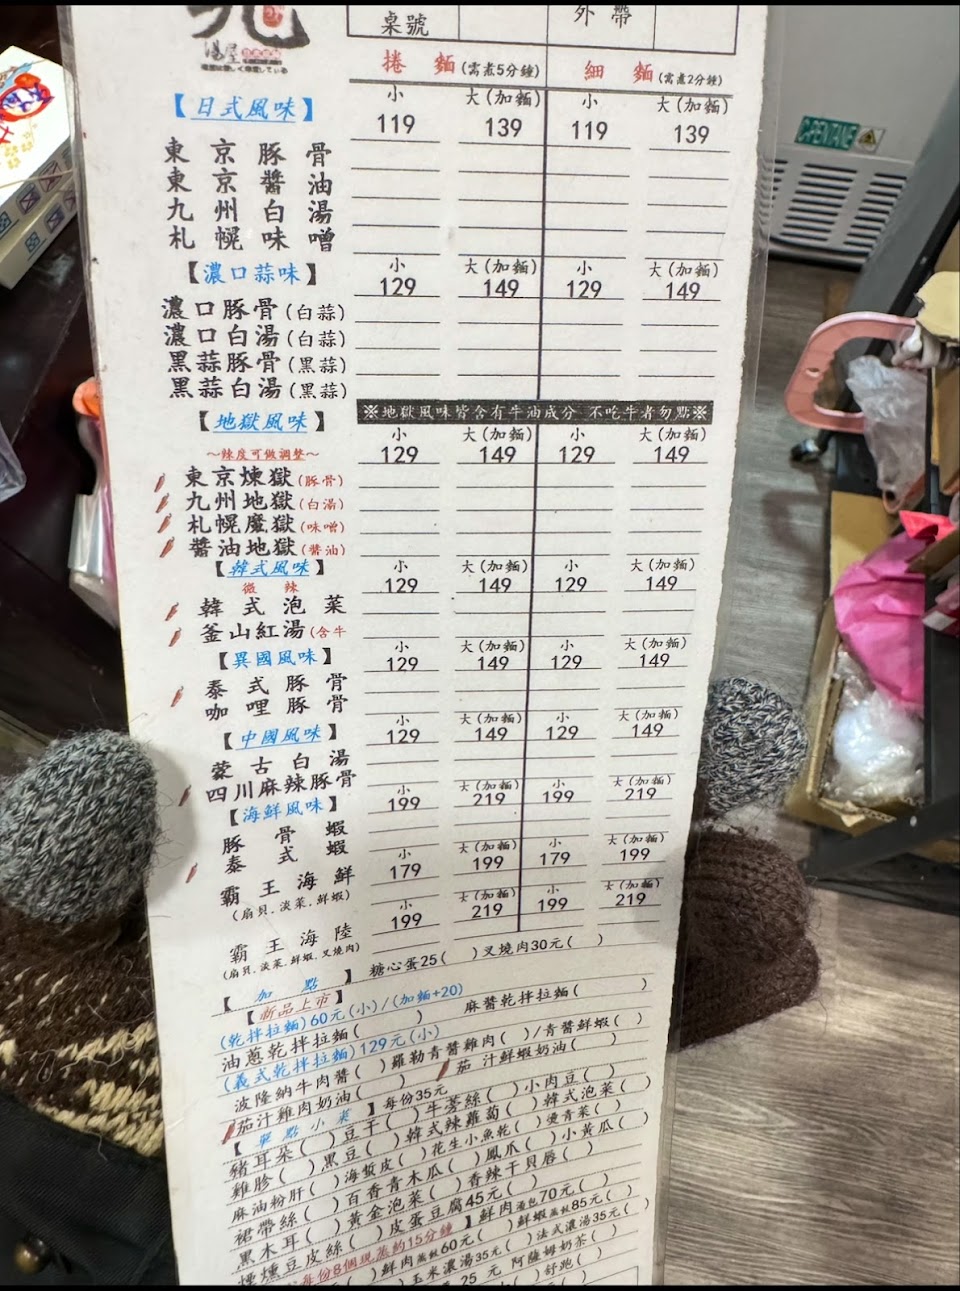 桌號 外帶
湯屋
捲麵(需煮5分鐘) 細麵(需煮2分鐘)
【日式風味】 小 大(加麵) 小 大(加麵)
119 139 119 139
東京豚骨
東京醬油
九州白湯
札幌味噌
【濃口蒜味】 小 大(加麵) 小 大(加麵)
129 149 129 149
濃口豚骨(白蒜)
濃口白湯(白蒜)
黑蒜豚骨(黑蒜)
黑蒜白湯(黑蒜)
※地獄風味皆含有牛油成分 不吃牛者勿點※
【地獄風味】 小 大(加麵) 小 大(加麵)
～辣度可做調整～ 129 149 129 149
東京煉獄(豚骨)
九州地獄(白湯)
札幌魔獄(味噌)
醬油地獄(醬油)
【韓式風味】 小 大(加麵) 小 大(加麵)
微辣 129 149 129 149
韓式泡菜
釜山紅湯(含牛
【異國風味】 小 大(加麵) 小 大(加麵)
129 149 129 149
泰式豚骨
咖哩豚骨
【中國風味】 小 大(加麵) 小 大(加麵)
129 149 129 149
蒙古白湯
四川麻辣豚骨
【海鮮風味】 小 大(加麵) 小 大(加麵)
199 219 199 219
豚骨蝦
泰式蝦 小 大(加麵) 小 大(加麵)
179 199 179 199
霸王海鮮
(扇貝.淡菜.鮮蝦) 小 大(加麵) 小 大(加麵)
199 219 199 219
霸王海陸
(扇貝.淡菜.鮮蝦.叉燒肉)
【加點】 糖心蛋25( )叉燒肉30元( )
【新品上市】
(乾拌拉麵)60元(小)/(加麵+20)
油蔥乾拌拉麵( ) 麻醬乾拌拉麵( )
(義式乾拌拉麵)129元(小)
波隆納牛肉醬( )羅勒青醬雞肉( )/青醬鮮蝦( )
茄汁雞肉奶油( ) 茄汁鮮蝦奶油( )
【單點小菜】每份35元
豬耳朵( )豆干( )牛蒡絲( )小肉豆( )
雞胗( )黑豆( )韓式辣蘿蔔( )韓式泡菜( )
麻油粉肝( )海蜇皮( )花生小魚乾( )燙青菜( )
裙帶絲( )百香青木瓜( )鳳爪( )小黃瓜( )
黑木耳( )黃金泡菜( )香辣干貝唇( )
煙燻豆皮絲( )皮蛋豆腐45元( )
每份8個現蒸約15分鐘】鮮肉湯包70元( )
( )鮮肉蒸餃60元( )鮮蝦蒸餃85元( )
( )玉米濃湯35元( )法式濃湯35元( )
25元 阿薩姆奶茶( )
( )舒跑( )